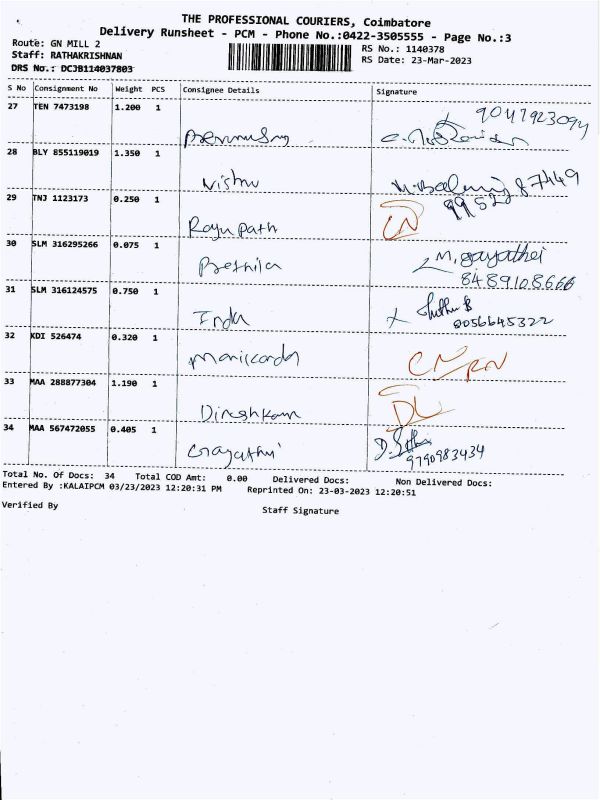 THE PROFESSIONAL COURIERS, Coimbatore
Delivery Runsheet - PCM - Phone No.:0422-3505555 - Page No.:3
Route: GN MILL 2
RS No.: 1140378
Staff: RATHAKRISHNAN
RS Date: 23-Mar-2023
DRS No.: DCJB114037803
S No Consignment No Weight PCS Consignee Details Signature
27 TEN 7473198 1.200 1
28 BLY 855119019 1.350 1 Vishnu
29 TNJ 1123173 0.250 1 CN
30 SLM 316295266 0.075 1 M. gayathri
8489108666
31 SLM 316124575 0.750 1
8056645322
32 KDI 526474 0.320 1 CN RN
33 MAA 288877304 1.190 1 DL
34 MAA 567472055 0.405 1 Gayathri
9790983434
Total No. Of Docs: 34 Total COD Amt: 0.00 Delivered Docs: Non Delivered Docs:
Entered By :KALAIPCM 03/23/2023 12:20:31 PM Reprinted On: 23-03-2023 12:20:51
Verified By
Staff Signature